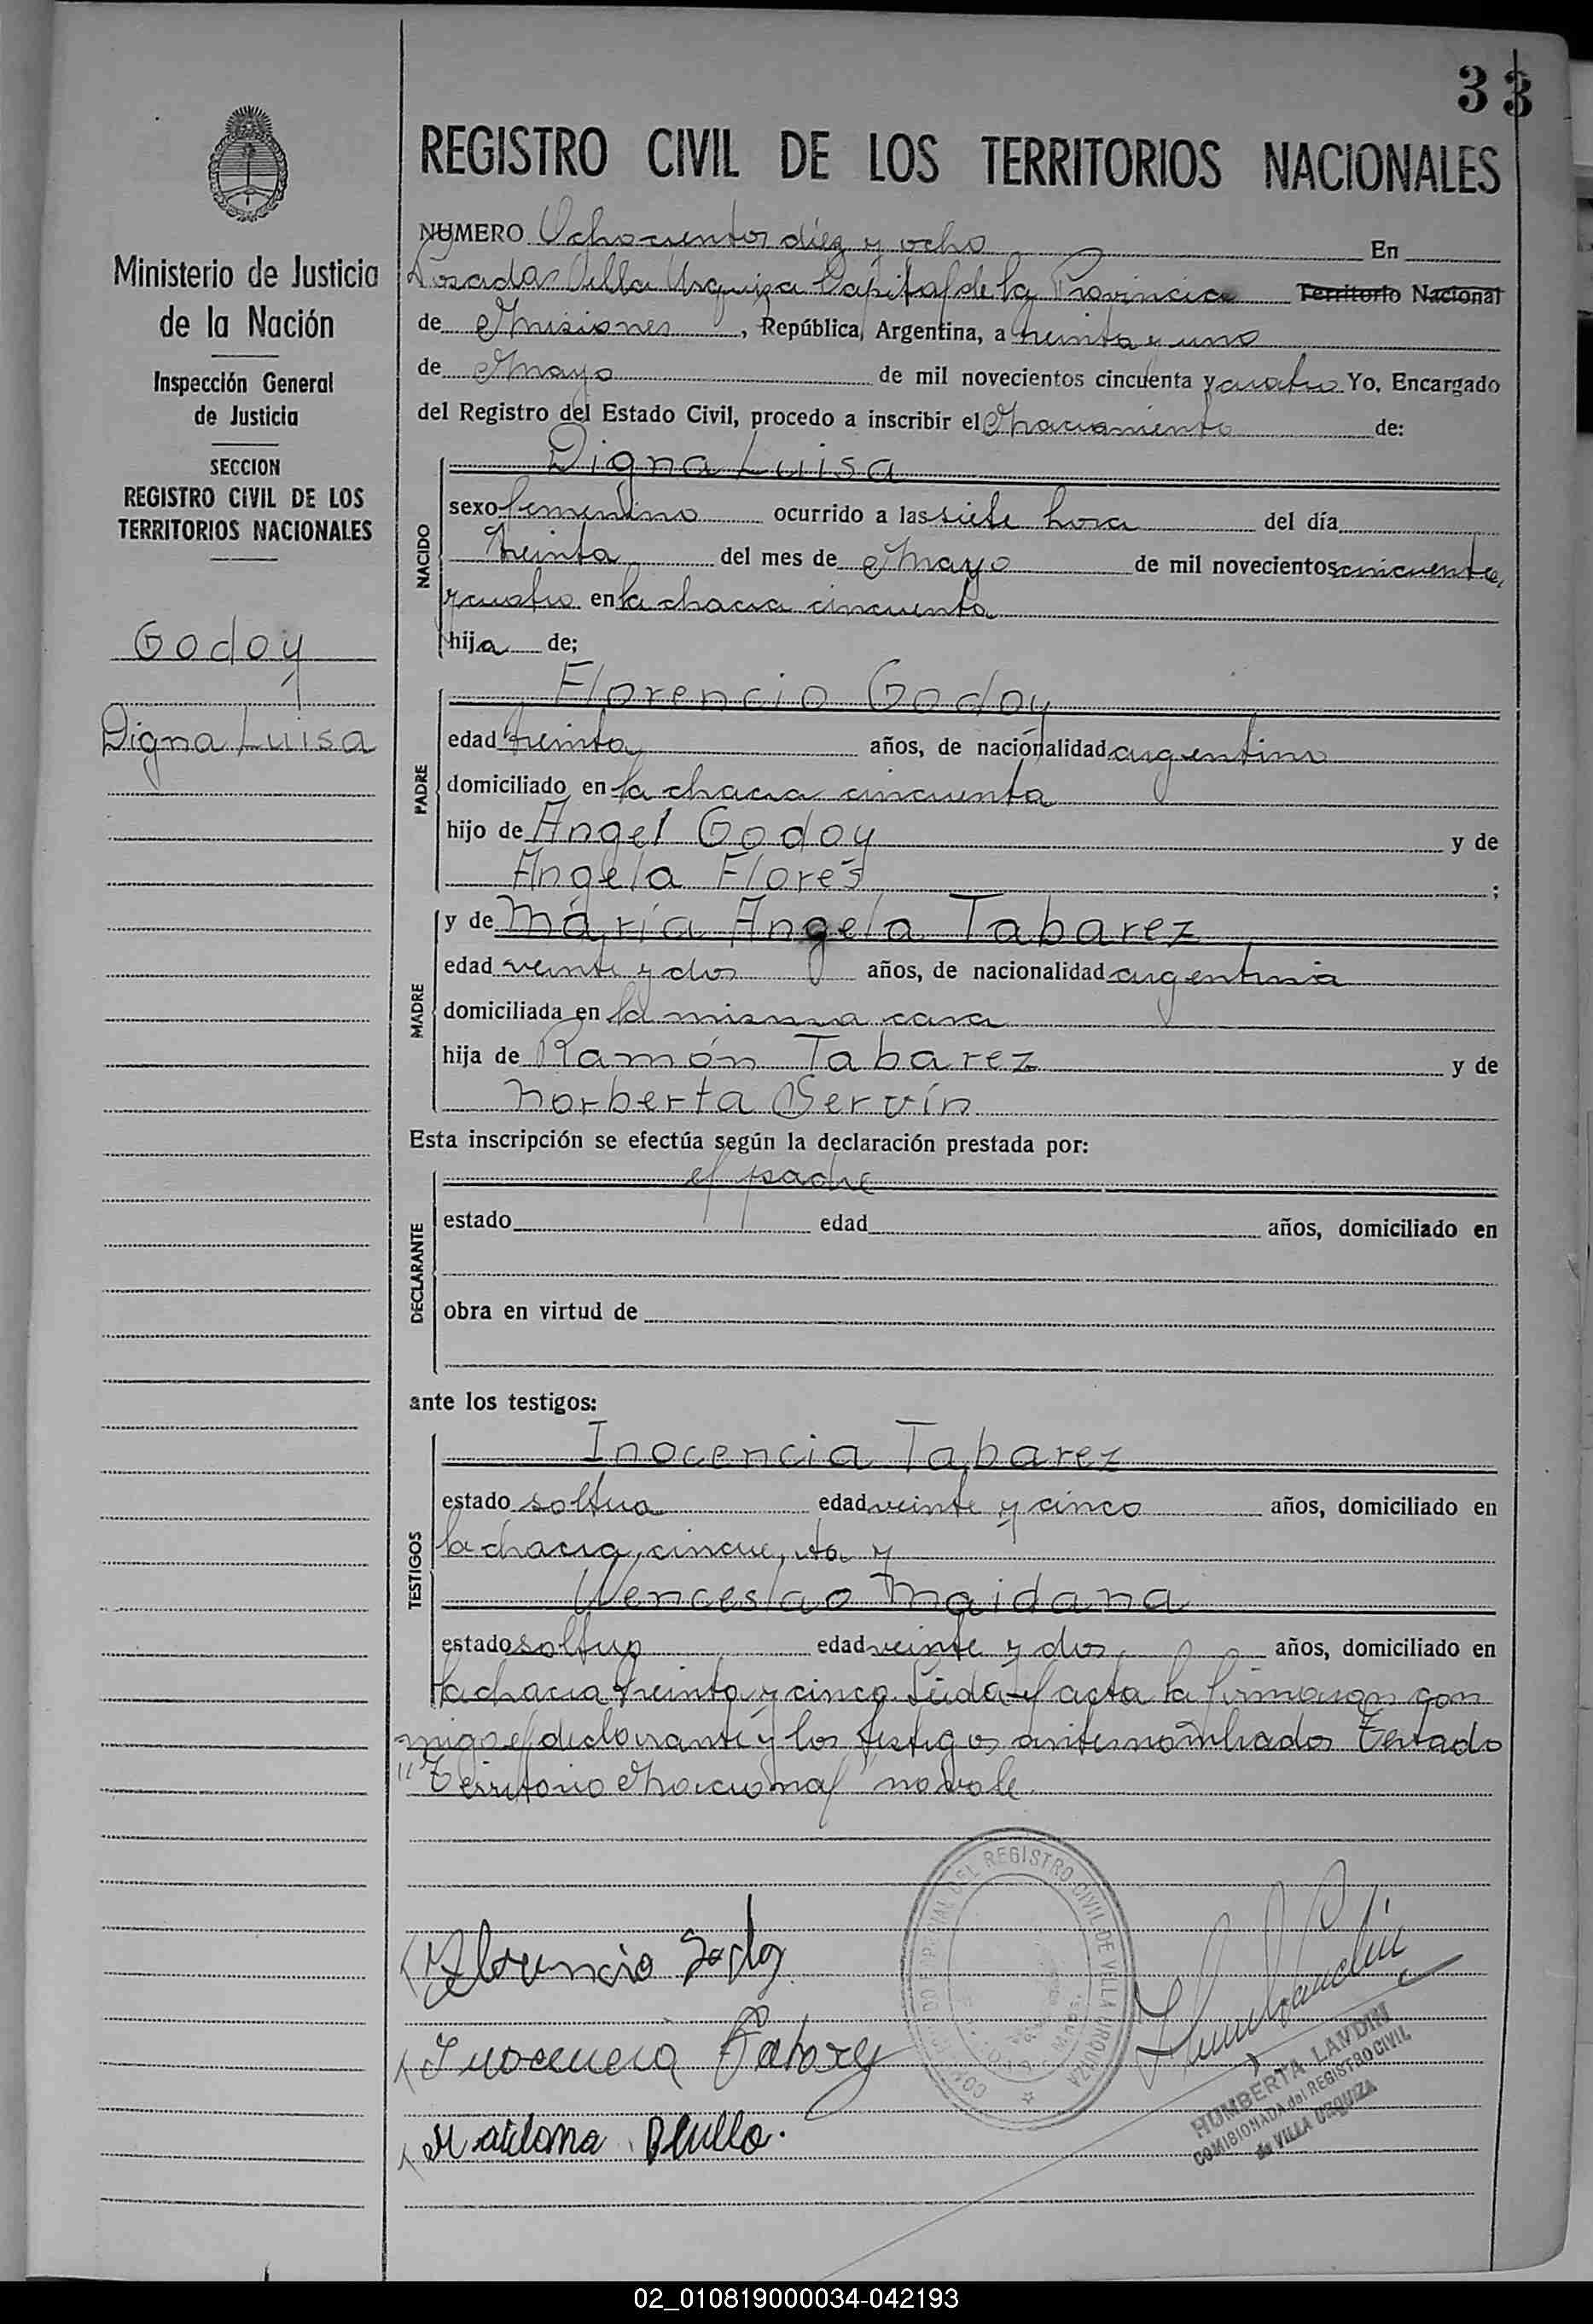 33
REGISTRO CIVIL DE LOS TERRITORIOS NACIONALES
Ministerio de Justicia
de la Nación
Inspección General
de Justicia
SECCION
REGISTRO CIVIL DE LOS
TERRITORIOS NACIONALES
Godoy
Digna Luisa
NUMERO Ochocientos diez y ocho En
Posadas Villa Urquiza Capital de la Provincia Territorio Nacional
de Misiones, República Argentina, a treinta y uno
de Mayo de mil novecientos cincuenta y cuatro Yo, Encargado
del Registro del Estado Civil, procedo a inscribir el Nacimiento de:
NACIDO
Digna Luisa
sexo femenino ocurrido a las siete hora del día
treinta del mes de Mayo de mil novecientos cincuenta
y cuatro en la chacra cincuenta
hija de;
PADRE
Florencio Godoy
edad treinta años, de nacionalidad argentino
domiciliado en la chacra cincuenta
hijo de Angel Godoy y de
Angela Flores ;
MADRE
y de María Angela Tabarez
edad veinte y dos años, de nacionalidad argentina
domiciliada en la misma casa
hija de Ramón Tabarez y de
Norberta Servín
Esta inscripción se efectúa según la declaración prestada por:
DECLARANTE
el padre
estado edad años, domiciliado en
obra en virtud de
ante los testigos:
TESTIGOS
Inocencia Tabarez
estado soltera edad veinte y cinco años, domiciliado en
la chacra cincuenta y
Wenceslao Maidana
estado soltero edad veinte y dos años, domiciliado en
la chacra treinta y cinco. Leída el acta la firmaron con
migo el declarante y los testigos antes nombrados Testado
"Territorio Nacional" no vale
Florencio Godoy
Inocencia Tabarez
Maidana
DEL REGISTRO CIVIL DE VILLA URQUIZA
HUMBERTA LANDIN
COMISIONADA del REGISTRO CIVIL
de VILLA URQUIZA
02_010819000034-042193